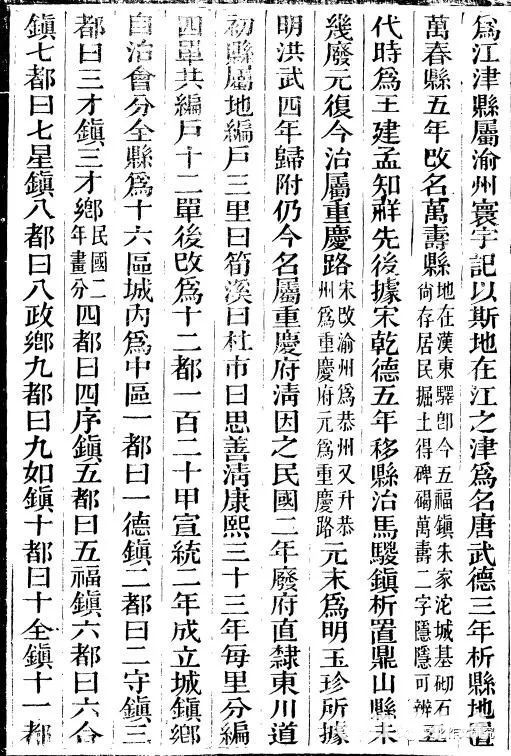 爲江津縣屬渝州寰宇記以斯地在江之津爲名唐武德三年析縣地置
萬春縣五年改名萬壽縣地在漢東驛卽今五福鎭朱家沱城基砌石尙存居民掘土得碑碣萬壽二字隱隱可辨
代時爲王建孟知祥先後據宋乾德五年移縣治馬騣鎭析置鼎山縣未
幾廢元復今治屬重慶路宋改渝州爲恭州又升恭州爲重慶府元爲重慶路元末爲明玉珍所據
明洪武四年歸附仍今名屬重慶府淸因之民國二年廢府直隸東川道
初縣屬地編戶三里曰筍溪曰杜市曰思善淸康熙三十三年每里分編
四單共編戶十二單後改爲十二都一百二十甲宣統二年成立城鎭鄕
自治會分全縣爲十六區城內爲中區一都曰一德鎭二都曰二守鎭三
都曰三才鎭三才鄕民國二年畫分四都曰四序鎭五都曰五福鎭六都曰六合
鎭七都曰七星鎭八都曰八政鄕九都曰九如鎭十都曰十全鎭十一都